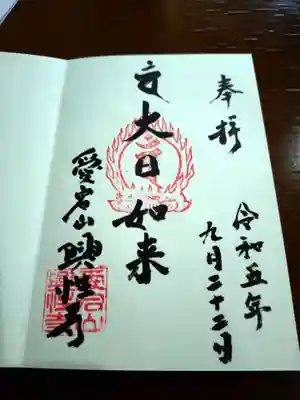 奉拝
令和五年
九月二十二日
大日如来
愛宕山 顕性寺